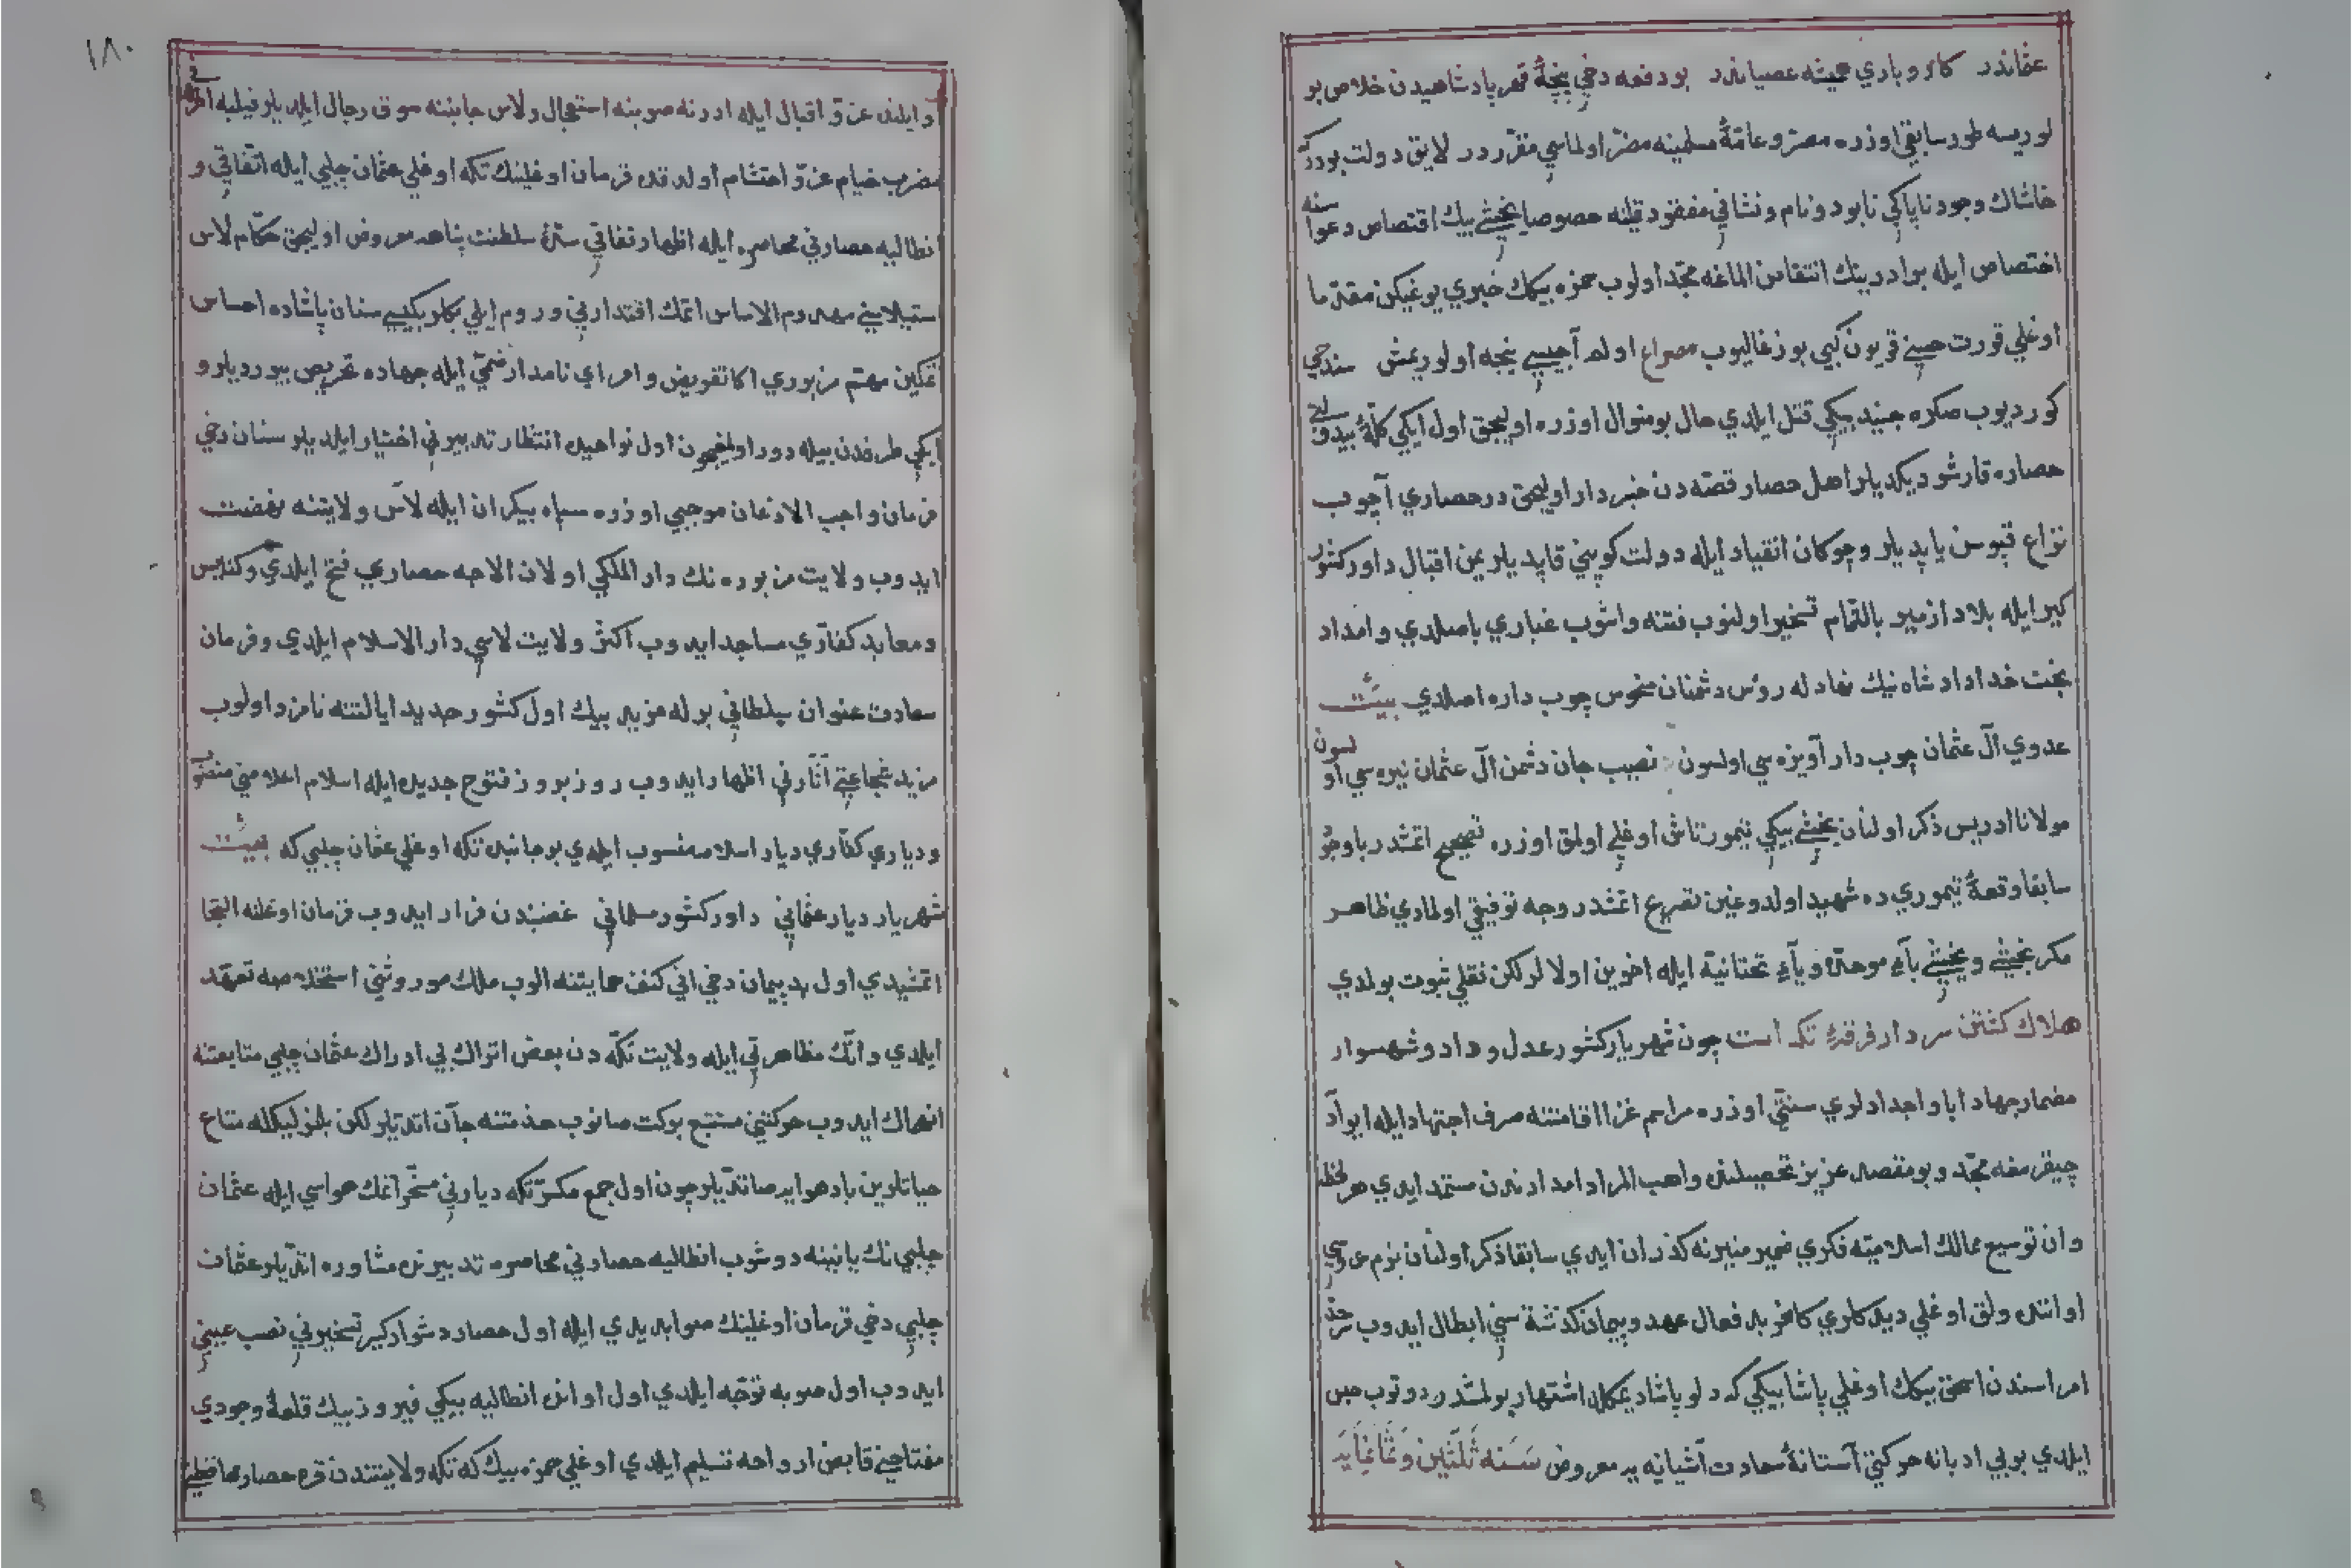 عثماندر كار و باري هميشه عصياندر بو دفعه دخي پنجهٔ قهر پادشاهيدن خلاص بو
لوريسه طور سابقي اوزره مصرّ و عامّهٔ مسلمينه مضرّ اولماسي مقرّر در لايق دولت بودركه
خاشاك وجود ناپاكي نابود و نام و نشاني مفقود قلينه خصوصا يخشي بيك اقتصاص دعواسنه
اختصاص ايله برادرينك انتقامن الماغه مجدّ اولوب حمزه بيكك خبري يوغيكن مقدّما
اوغلي قورت حسني قويون كبي بوزغاليوب مصراع اولم آجيسي نيجه اولوريمش سندخي
كور ديوب صكره جنيد بيكي قتل ايلدي حال بو منوال اوزره اوليجق اول ايكي كلّهٔ بيدولتي
حصاره قارشو ديكديلر اهل حصار قصّه دن خبردار اوليجق در حصاري آچوب
نزاع قپوسن ياپديلر و چوكان انقياد ايله دولت كويني قاپديلر يمن اقبال داور كشور
كير ايله بلاد ازمير بالتمام تسخير اولنوب فتنه و آشوب غباري باصلدي و امداد
بخت خداداد شاه نيك نهادله رؤس دشمنان منحوس چوب داره اصلدي بيت
عدوي آل عثمان چوب دار آويزه سي اولسون نصيب جان دشمن آل عثمان نيزه سي اولسون
مولانا ادريس ذكر اولنان يخشي بيكي تيمورتاش اوغلي اولمق اوزره تصحيح اتمشدر باوجو
سابقا وقعهٔ تيموري ده شهيد اولدوغين تصريح اتمشدر وجه توفيقي اولمادي ظاهر
مكر بخشي و يخشي بآء موحده و يآء تحتانيه ايله اخوين اولالر لكن نقلي ثبوت بولمدي
هلاك كشتن سردار فرقهٔ تكه است چون شهريار كشور عدل و داد و شهسوار
مضمار جهاد ابا و اجدادلري سنتي اوزره مراسم غزا اقامتنه صرف اجتهاد ايله ابوا
چيقرمغه مجدّ و بو مقصد عزيز تحصيلنده واهب المراد امدادندن مستمد ايدي هر لحظه
وان توسيع ممالك اسلاميه فكري ضمير منيرنه كذران ايدي سابقا ذكر اولنان بزم عروسي
اواننده ولق اوغلي ديدكلري كافر بد فعال عهد و پيمان كذشته سني ابطال ايدوب سرحد
امراسندن اسحق بيكك اوغلي پاشا بيكي كه دلو پاشا ديمكله اشتهار بولمشدر دوتوب حبس
ايلدي بو بي ادبانه حركتي آستانهٔ سعادت آشيانه يه معروض سَنه ثَلثين وَثمانمايه
اوليلن عزّ و اقبال ايله ادرنه صوبنه استعجال و لاس جانبنه سوق رجال ايلديلر فيلبه
مضرب خيام عزّ و احتشام اولدقده قرمان اوغلينك تكه اوغلي عثمان چلبي ايله اتّفاقي و
انطاليه حصارني محاصره ايله اظهار نفاقي سدّهٔ سلطنت پناهه معروض اوليجق حكّام لاس
استيلاسني مهدوم الاساس اتمك اقتدارني و روم ايلي بكلربكيسي سنان پاشاده احساس
اتمكين مهمّ مزبوري اكا تفويض و امراي نامدار ضمّي ايله جهاده تحريص بيورديلر و
ايكي طرفدن بيله دور اولميجون اول نواحيده انتظار تدبيرني اختيار ايلديلر سنان دخي
فرمان واجب الاذعان موجبي اوزره سپاه بيكران ايله لاس ولايتنه نهضت
ايدوب ولايت مزبوره نك دار الملكي اولان الاجه حصاري فتح ايلدي و كنايس
و معابد كفّاري مساجد ايدوب اكثر ولايت لاسي دار الاسلام ايلدي و فرمان
سعادت عنوان سلطاني بوله مزيد بيك اول كشور جديد ايالتنه نامزد اولوب
مزيد شجاعتي آثارني اظهار ايدوب روز بروز فتوح جديده ايله اسلام اعلامني منصوب
و دياري كفّاري ديار اسلامه منسوب ايلدي بو جانبده تكه اوغلي عثمان چلبي كه بيت
شهريار ديار عثماني داور كشور مسلماني غضبندن فرار ايدوب قرمان اوغلنه التجا
اتمشيدي اول بد پيمان دخي اني كنف حمايتنه الوب ملك موروثني استخلاصه تعهّد
ايلدي و انك مظاهرتي ايله ولايت تكه دن بعض اتراك بي ادراك عثمان چلبي متابعتنه
انهماك ايدوب حركتني مستتبع بركت صانوب خدمتنه جآن اتديلر لكن بلمزليكلله متاع
حياتلرين باد هوايه صاتديلر چون اول جمع مكسّر تكه ديارني مسخّر اتمك هواسي ايله عثمان
چلبي نك ياننه دوشوب انطاليه حصارني محاصره تدبيرنده مشاوره اتديلر عثمان
چلبي دخي قرمان اوغلينك صوابديدي ايله اول حصار دشوار كير تسخيرني نصب عيني
ايدوب اول صوبه توجّه ايلدي اول اوانده انطاليه بيكي فيروز بيك قلعهٔ وجودي
مفتاحني قابض ارواحه تسليم ايلدي اوغلي حمزه بيك كه تكه ولايتندن قره حصار محافظه
١٨٠